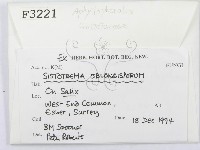 F3221
Ex HERB. HORT. BOT. REG. KEW.
SISTOTREMA OBLONGISPORUM
On Salix
West-End Common,
Esher, Surrey
18 Dec 1994
BM Spooner
Peter Roberts